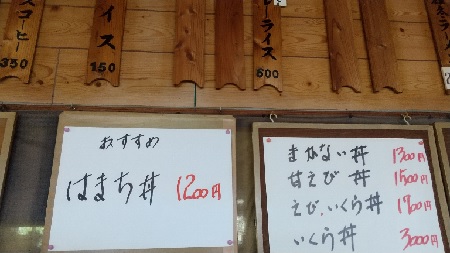 スコーヒー
350
イス
150
ライス
500
おすすめ
はまち丼 1200円
まかない丼 1300円
甘えび丼 1500円
えび、いくら丼 1900円
いくら丼 3000円